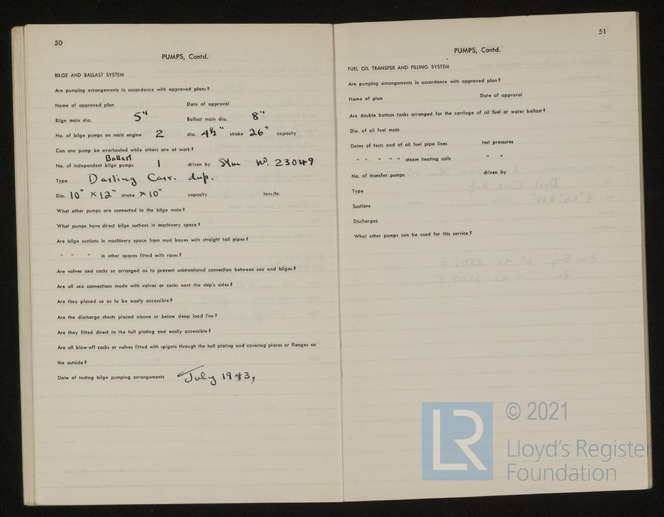 50
PUMPS, Contd.
BILGE AND BALLAST SYSTEM
Are pumping arrangements in accordance with approved plans?
Name of approved plan Date of approval
Bilge main dia. 5" Ballast main dia. 8"
No. of bilge pumps on main engine 2 dia. 4½" stroke 26" capacity
Can one pump be overhauled while others are at work?
Ballast
No. of independent bilge pumps 1 driven by Stm No. 23049
Type Darling Carr. dup.
Dia. 10" × 12" stroke × 10" capacity tons/hr.
What other pumps are connected to the bilge main?
What pumps have direct bilge suctions in machinery space?
Are bilge suctions in machinery space from mud boxes with straight tail pipes?
" " " in other spaces fitted with roses?
Are valves and cocks so arranged as to prevent unintentional connection between sea and bilges?
Are all sea connections made with valves or cocks next the ship's sides?
Are they placed so as to be easily accessible?
Are the discharge chests placed above or below deep load line?
Are they fitted direct to the hull plating and easily accessible?
Are all blow-off cocks or valves fitted with spigots through the hull plating and covering plates or flanges on
the outside?
Date of testing bilge pumping arrangements July 1943,
51
PUMPS, Contd.
FUEL OIL TRANSFER AND FILLING SYSTEM
Are pumping arrangements in accordance with approved plans?
Name of plan Date of approval
Are double bottom tanks arranged for the carriage of oil fuel or water ballast?
Dia. of oil fuel main
Dates of tests end of all fuel pipe lines test pressures
" " " " " steam heating coils " "
No. of transfer pumps driven by
Type
Suctions
Discharges
What other pumps can be used for this service?
LR
© 2021
Lloyd's Register
Foundation